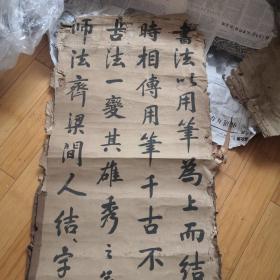 書法以用筆為上而結
時相傳用筆千古不
其法一變其雄秀之氣
師法齊梁間人結字